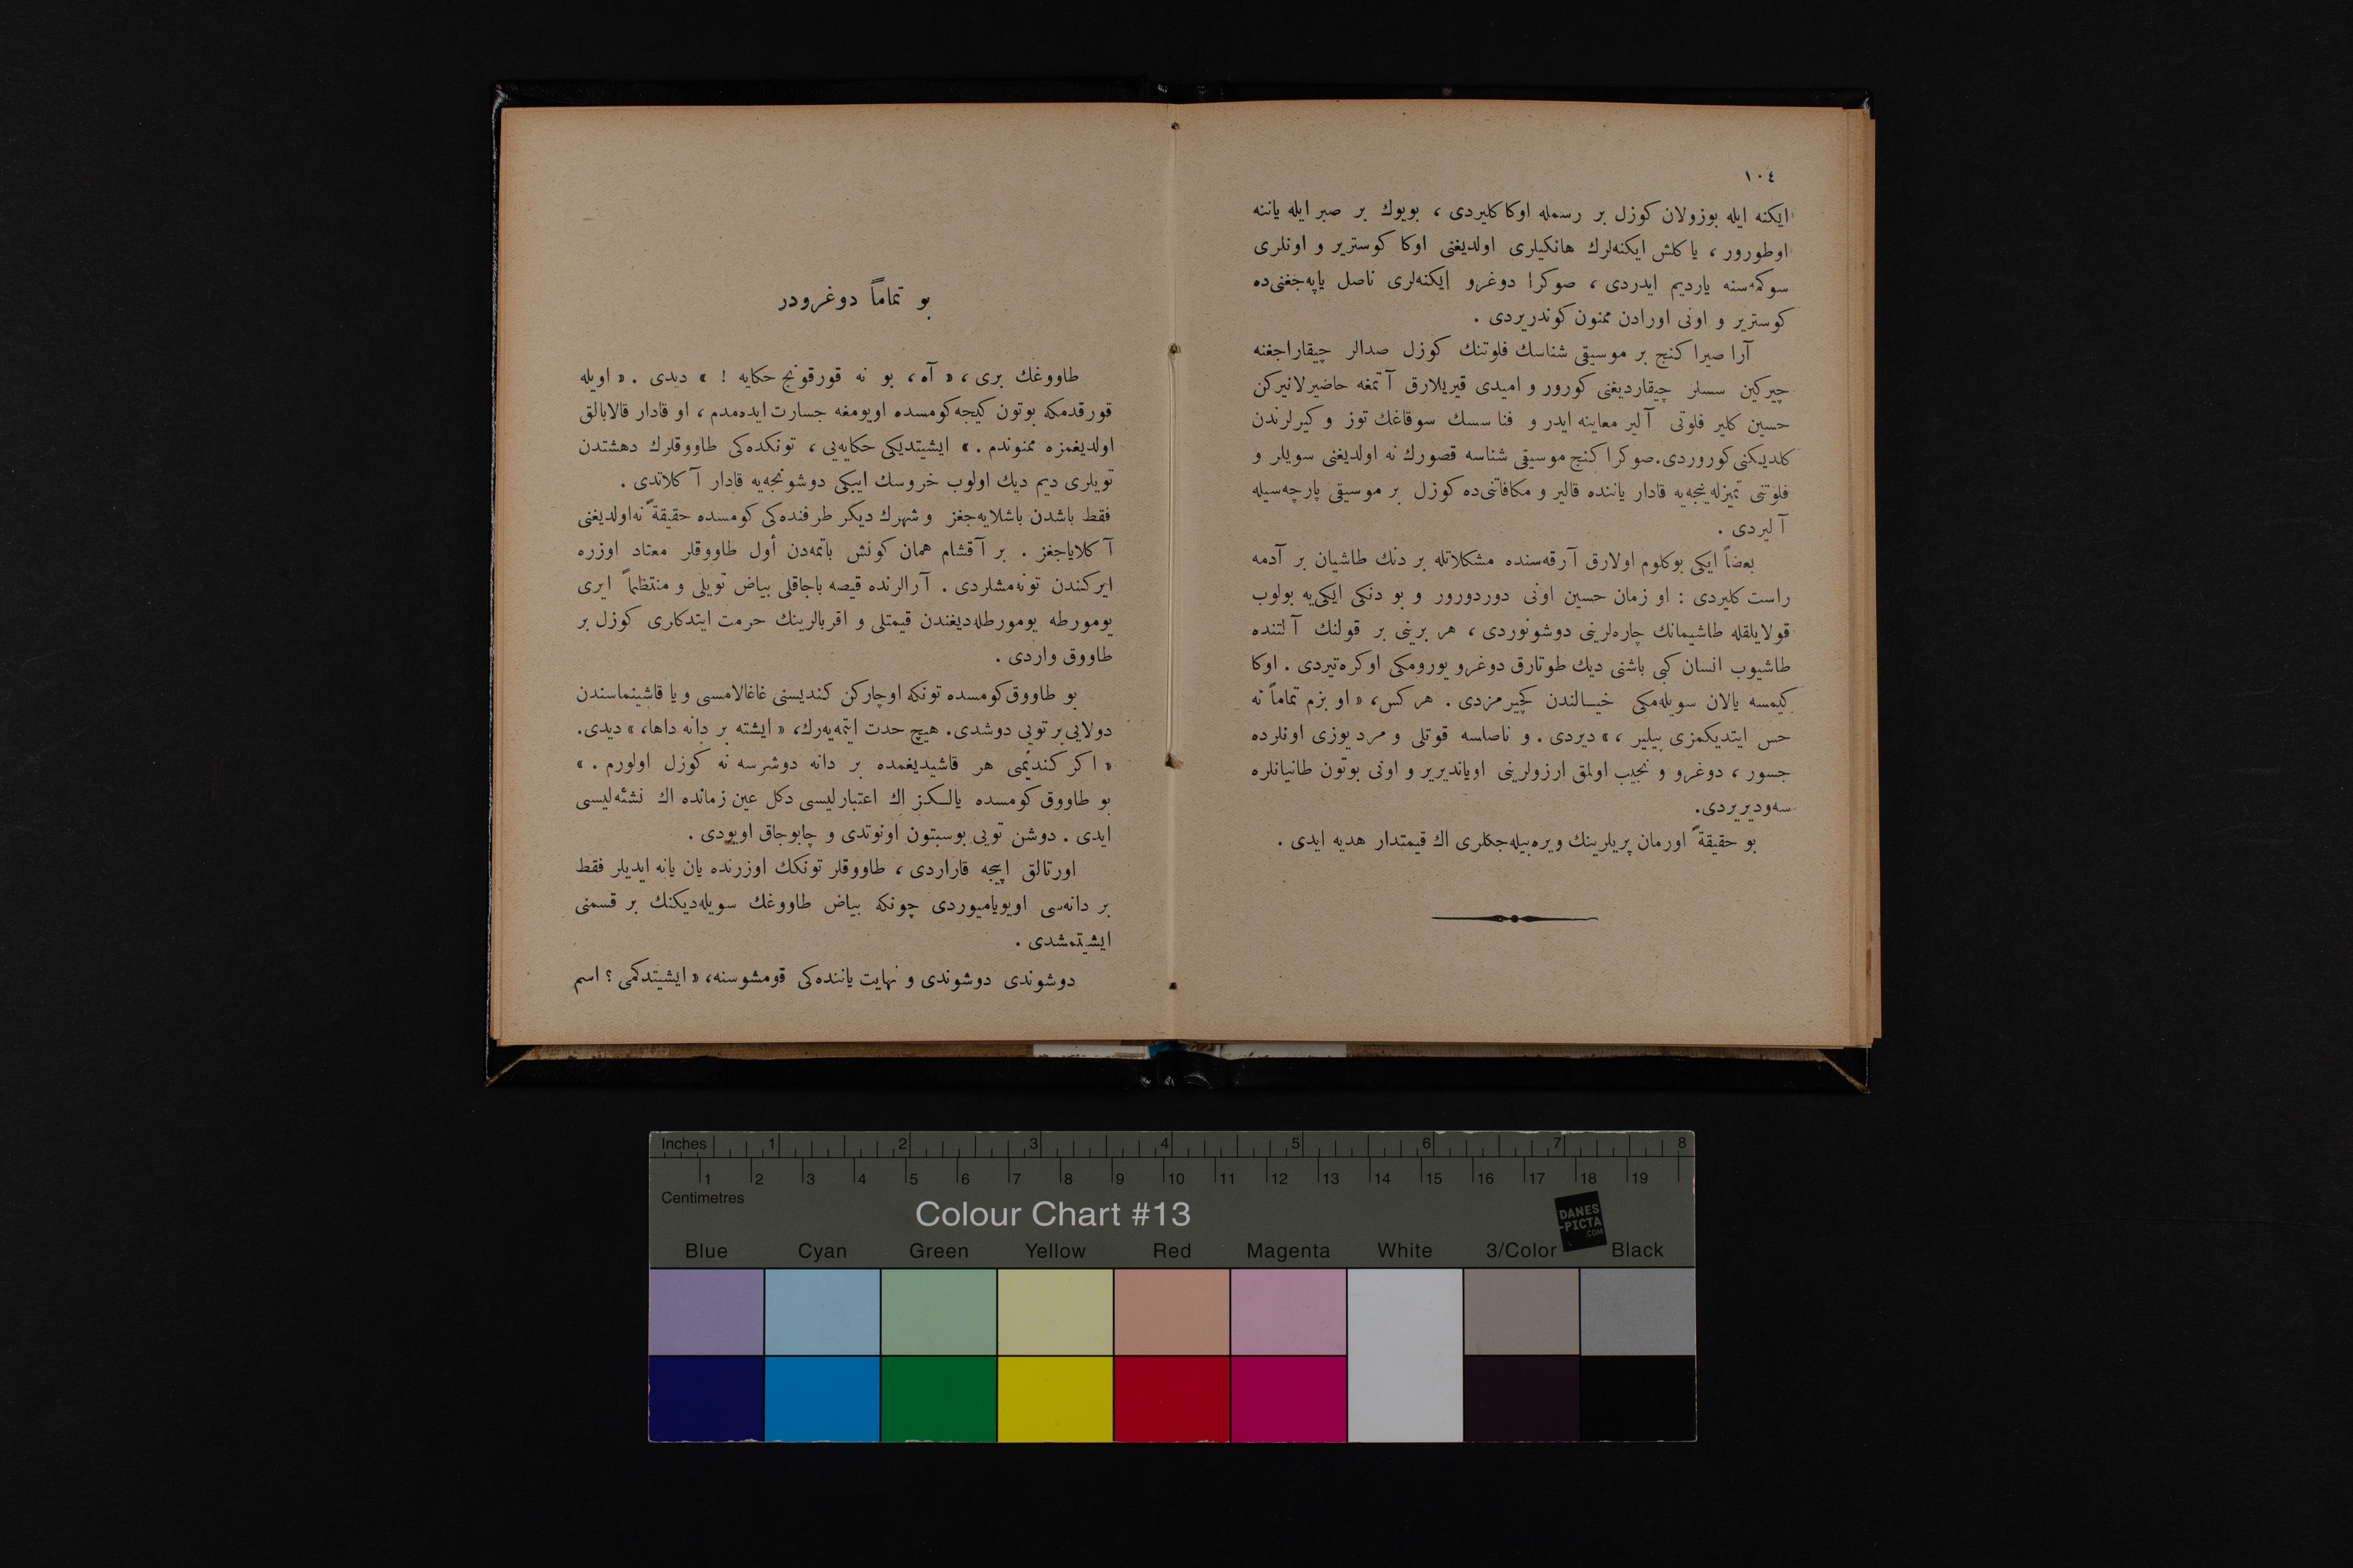 ١٠٤
ایكنه ایله بوزولان كوزل بر رسمله اوكا كلیردی ، بویوك بر صبر ایله یاننه
اوطورور ، یا كلش ایكنه‌لرك هانكیلری اولدیغنی اوكا كوستریر و اونلری
سوكمه‌سنه یاردیم ایدردی ، صوكرا دوغرو ایكنه‌لری ناصل یاپه‌جغنی‌ده
كوستریر و اونی اورادن ممنون كوندریردی .
آرا صیرا كنج بر موسیقی شناسك فلوتنك كوزل صدالر چیقاراجغنه
چیركین سسلر چیقاردیغنی كورور و امیدی قیریلارق آتمغه حاضیرلانیركن
حسین كلیر فلوتی آلیر معاینه ایدر و فنا سسك سوقاغك توز و كیرلرندن
كلدیكنی كوروردی. صوكرا كنج موسیقی شناسه قصورك نه اولدیغنی سویلر و
فلوتنی تمیزله‌ینجه‌یه قادار یاننده قالیر و مكافاتنی‌ده كوزل بر موسیقی پارچه‌سیله
آلیردی .
بعضاً ایكی بوكلوم اولارق آرقه‌سنده مشكلاتله بر دنك طاشیان بر آدمه
راست كلیردی : او زمان حسین اونی دوردورور و بو دنكی ایكی‌یه بولوب
قولایلقله طاشیمانك چاره‌لرینی دوشونوردی ، هر برینی بر قولنك آلتنده
طاشیوب انسان كبی باشنی دیك طوتارق دوغرو یورومكی اوكره‌تیردی . اوكا
كیمسه یالان سویله‌مكی خیـالندن كچیرمزدی . هر كس، « او بزم تماماً نه
حس ایتدیكمزی بیلیر ، » دیردی . و ناصلسه قوتلی و مرد یوزی اونلرده
جسور ، دوغرو و نجیب اولمق ارزولرینی اویاندیریر و اونی بوتون طانیانلره
سه‌ودیریردی.
بو حقیقةً اورمان پریلرینك ویره‌بیله‌جكلری اك قیمتدار هدیه ایدی .
بو تماماً دوغرودر
طاووغك بری ، « آه ، بو نه قورقونج حكایه ! » دیدی . « اویله
قورقدمكه بوتون كیجه كومسده اویومغه جسارت ایده‌مدم ، او قادار قالابالق
اولدیغمزه ممنوندم . » ایشیتدیكی حكایه‌یی ، تونكده‌كی طاووقلرك دهشتدن
تویلری دیم دیك اولوب خروسك ایبكی دوشونجه‌یه قادار آكلاتدی .
فقط باشدن باشلایه‌جغز و شهرك دیكر طرفنده‌كی كومسده حقیقةً نه‌اولدیغنی
آكلایاجغز . بر آقشام همان كونش باتمه‌دن أول طاووقلر معتاد اوزره
ایركندن تونه‌مشلردی . آرالرنده قیصه باجاقلی بیاض تویلی و منتظماً ایری
یومورطه یومورطله‌دیغندن قیمتلی و اقربالرینك حرمت ایتدكلری كوزل بر
طاووق واردی .
بو طاووق كومسده تونكه اوچاركن كندیسنی غاغالامسی و یا قاشینماسندن
دولایی بر تویی دوشدی. هیچ حدت ایتمه‌یه‌رك، « ایشته بر دانه داها، » دیدی.
« اكر كندیمی هر قاشیدیغمده بر دانه دوشرسه نه كوزل اولورم . »
بو طاووق كومسده یالـكـز اك اعتبارلیسی دكل عین زمانده اك نشئه‌لیسی
ایدی . دوشن تویی بوسبتون اونوتدی و چابوجاق اویودی .
اورتالق اییجه قاراردی ، طاووقلر تونكك اوزرنده یان یانه ایدیلر فقط
بر دانه‌سی اویویامیوردی چونكه بیاض طاووغك سویله‌دیكنك بر قسمنی
ایشیتمشدی .
دوشوندی دوشوندی و نهایت یاننده‌كی قومشوسنه، « ایشیتدكمی ؟ اسم
Inches 1 2 3 4 5 6 7 8
1 2 3 4 5 6 7 8 9 10 11 12 13 14 15 16 17 18 19
Centimetres
Colour Chart #13
DANES
-PICTA
.COM
Blue Cyan Green Yellow Red Magenta White 3/Color Black